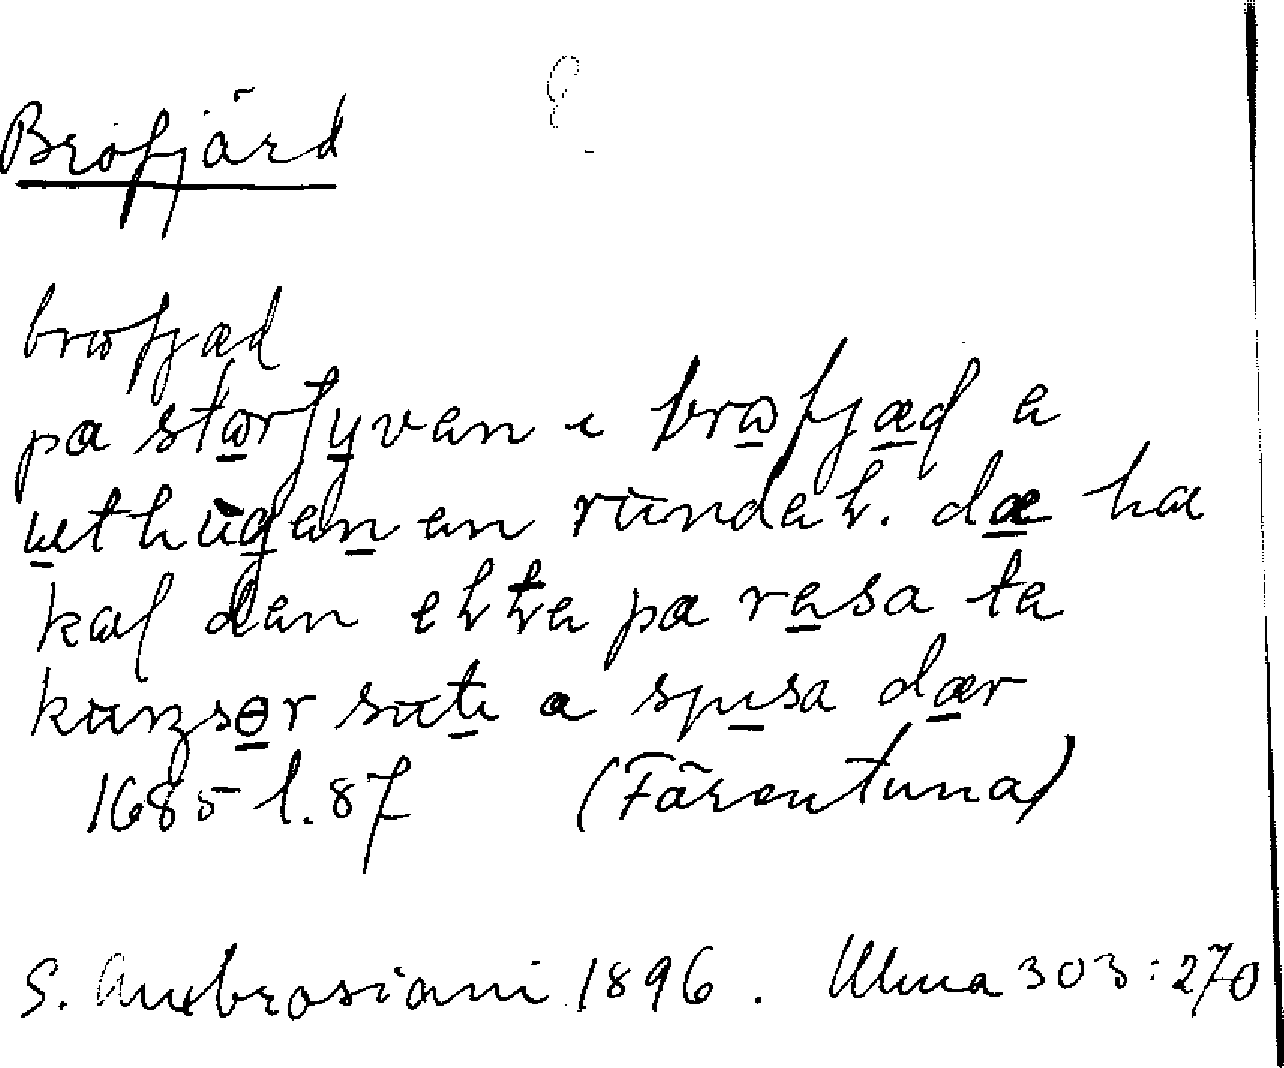 Brofjärd
brofjæd
pa stωrfyvæn i brωfjæd a
uthügen enründel. dæ ha
kal den ekka pa resa ta
künser süti a spisa dær
1685 l. 87 (Färentuna)
S. Ambrosiani 1896. Ulma 303:270